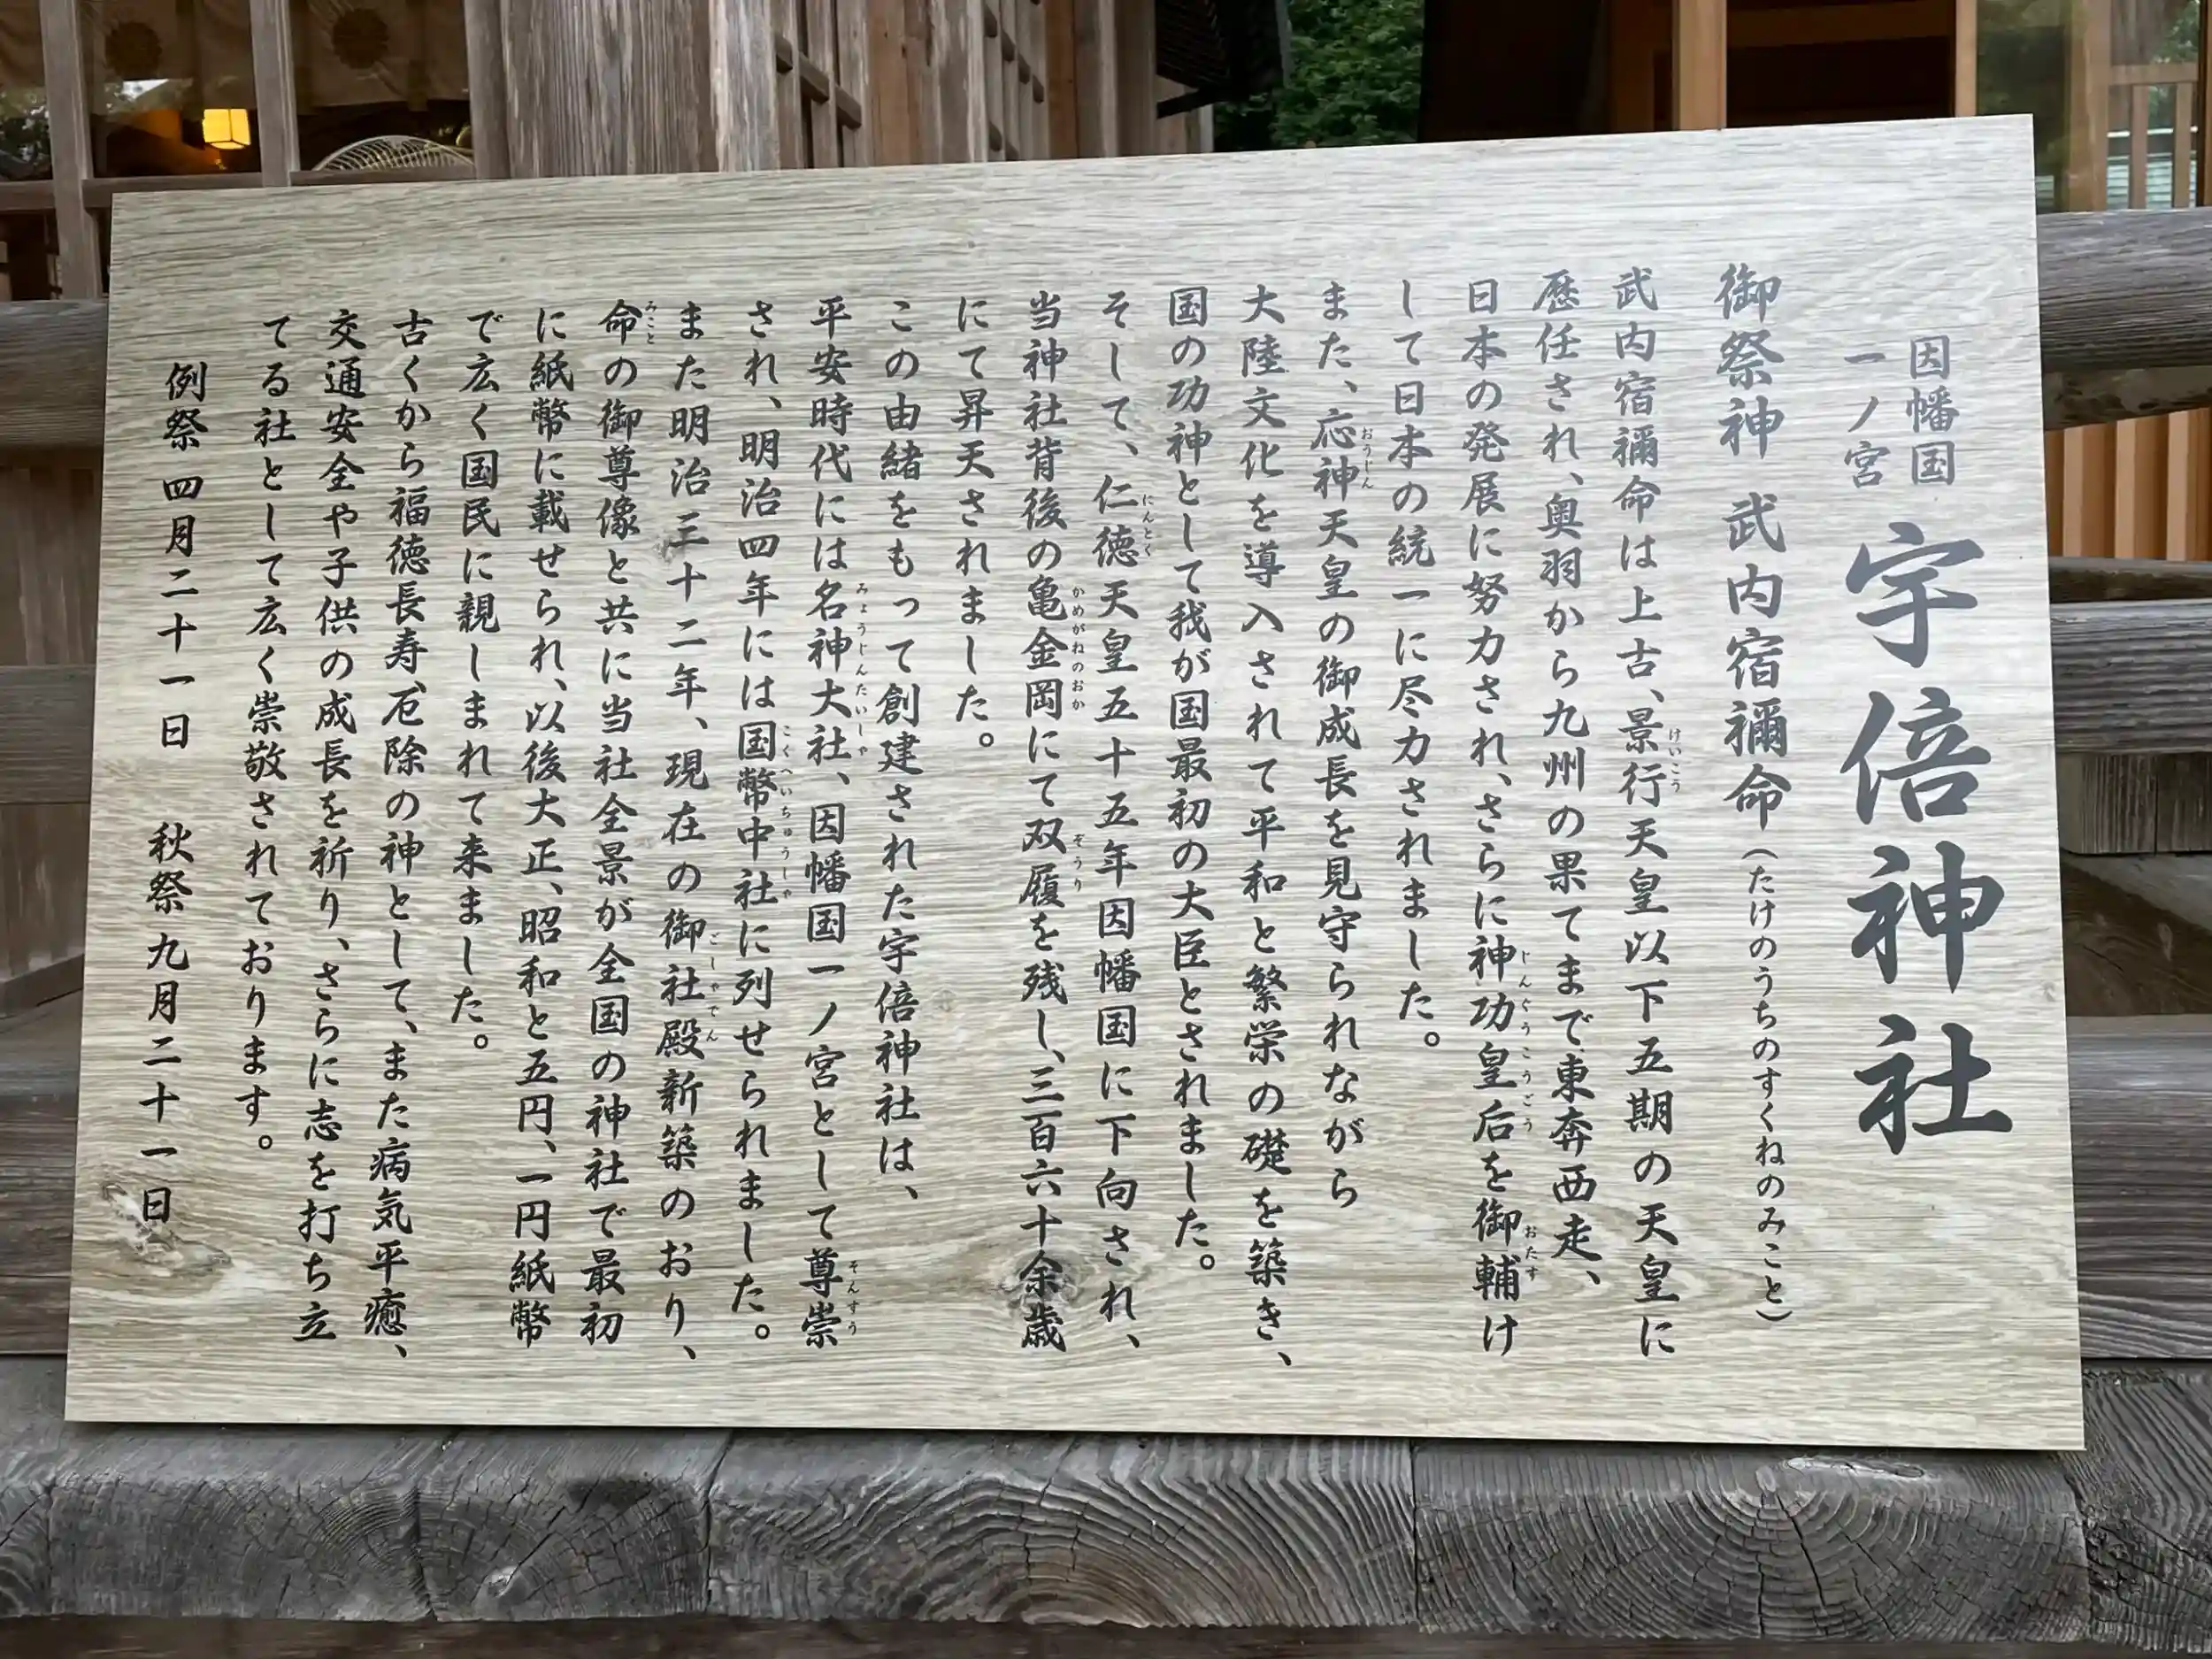 因幡国
一ノ宮
宇倍神社
御祭神 武内宿禰命(たけのうちのすくねのみこと)
武内宿禰命は上古、景行天皇以下五期の天皇に
歴任され、奥羽から九州の果てまで東奔西走、
日本の発展に努力され、さらに神功皇后を御輔け
して日本の統一に尽力されました。
また、応神天皇の御成長を見守られながら
大陸文化を導入されて平和と繁栄の礎を築き、
国の功神として我が国最初の大臣とされました。
そして、仁徳天皇五十五年因幡国に下向され、
当神社背後の亀金岡にて双履を残し、三百六十余歳
にて昇天されました。
この由緒をもって創建された宇倍神社は、
平安時代には名神大社、因幡国一ノ宮として尊崇
され、明治四年には国幣中社に列せられました。
また明治三十二年、現在の御社殿新築のおり、
命の御尊像と共に当社全景が全国の神社で最初
に紙幣に載せられ、以後大正、昭和と五円、一円紙幣
で広く国民に親しまれて来ました。
古くから福徳長寿、厄除の神として、また病気平癒、
交通安全や子供の成長を祈り、さらに志を打ち立
てる社として広く崇敬されております。
例祭 四月二十一日 秋祭 九月二十一日